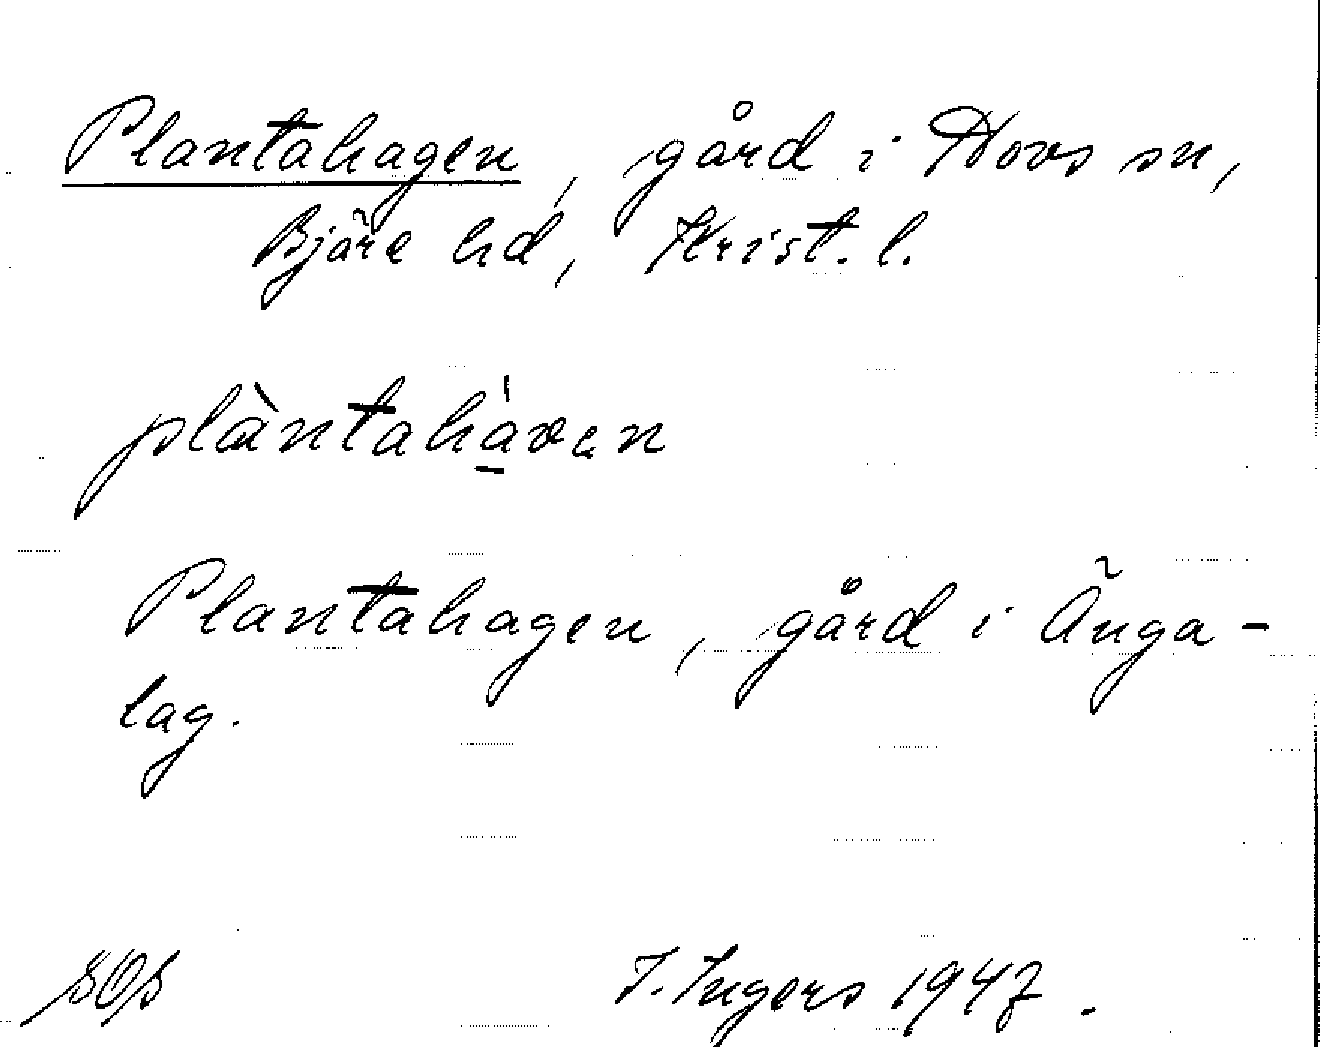 Plantahagen, gård i Hovs sn,
Bjäre hd, Krist. l.
plàntahàvan
Plantahagen, gård i Änga-
lag.
I. Ingers 1947.